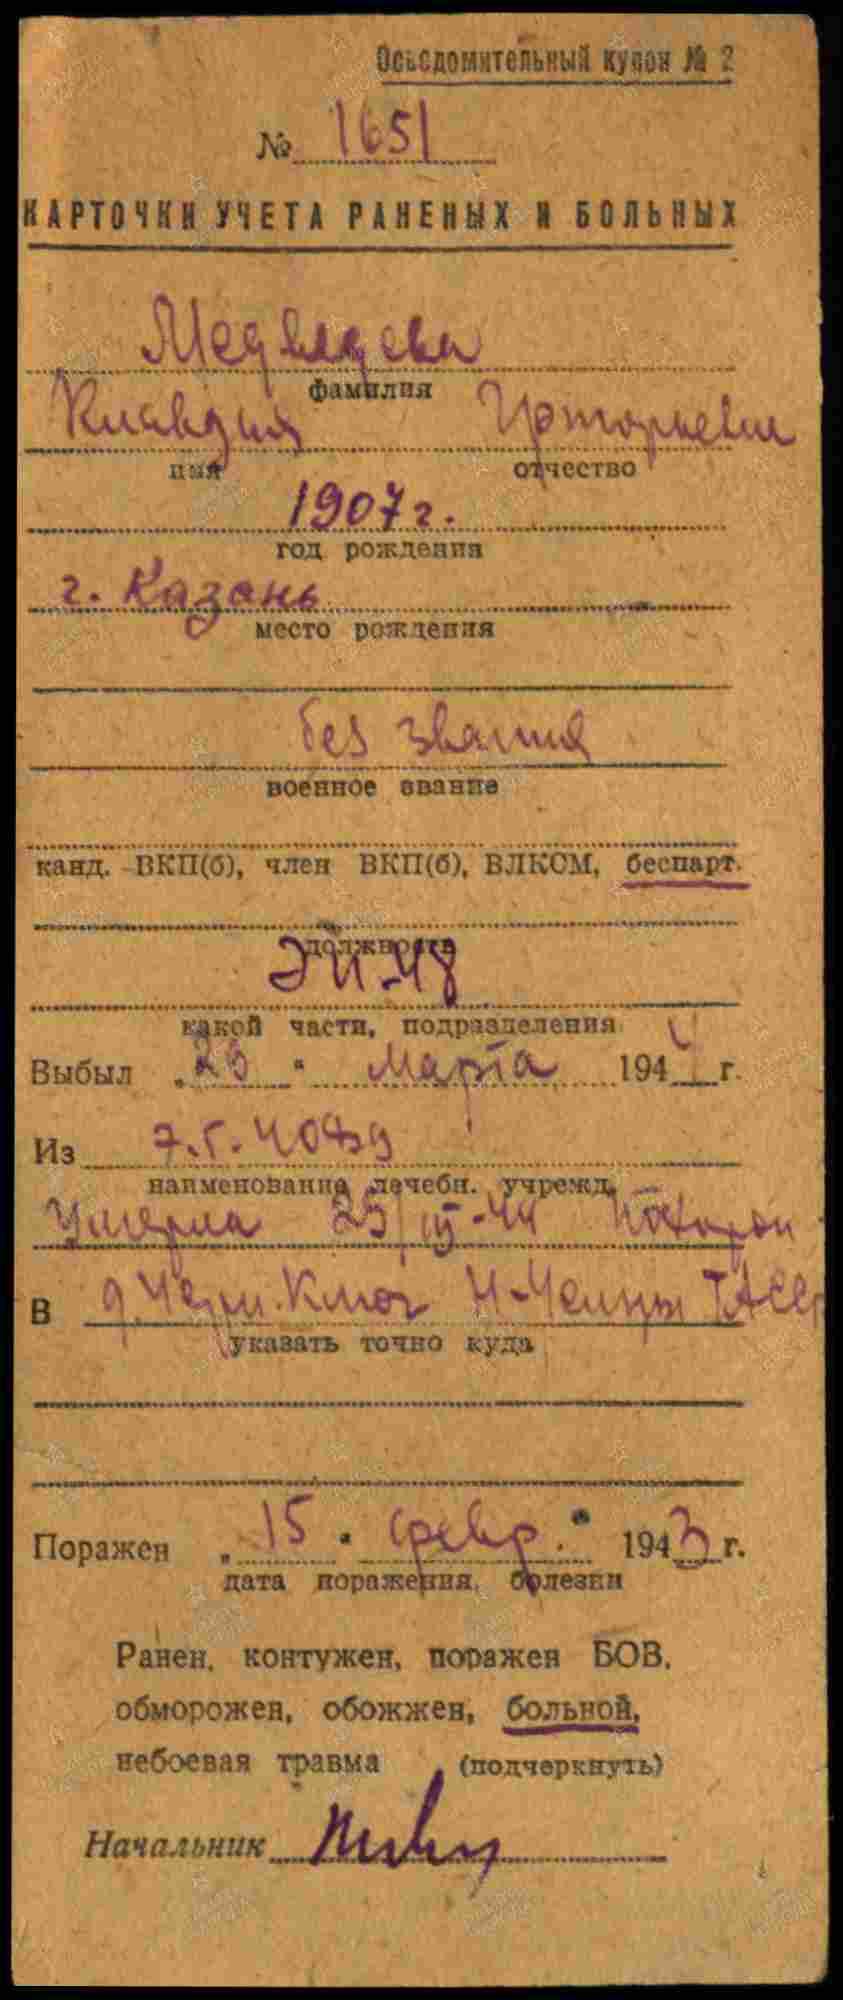 Осведомительный купон № 2
№ 1651
КАРТОЧКИ УЧЕТА РАНЕНЫХ И БОЛЬНЫХ
Медведева
фамилия
Клавдия Григорьевна
имя отчество
1907 г.
год рождения
г. Казань
место рождения
без звания
военное звание
канд. ВКП(б), член ВКП(б), ВЛКСМ, беспарт.
должность
какой части, подразделения
Выбыл „25 " Марта 1944 г.
Из
наименование лечебн. учрежд.
Умерла 25/III-44 Похорон.
В д. Черн. Ключ Н-Челны ТАССР
указать точно куда
Поражен „15 " февр. " 1943 г.
дата поражения, болезни
Ранен, контужен, поражен БОВ,
обморожен, обожжен, больной,
небоевая травма (подчеркнуть)
Начальник